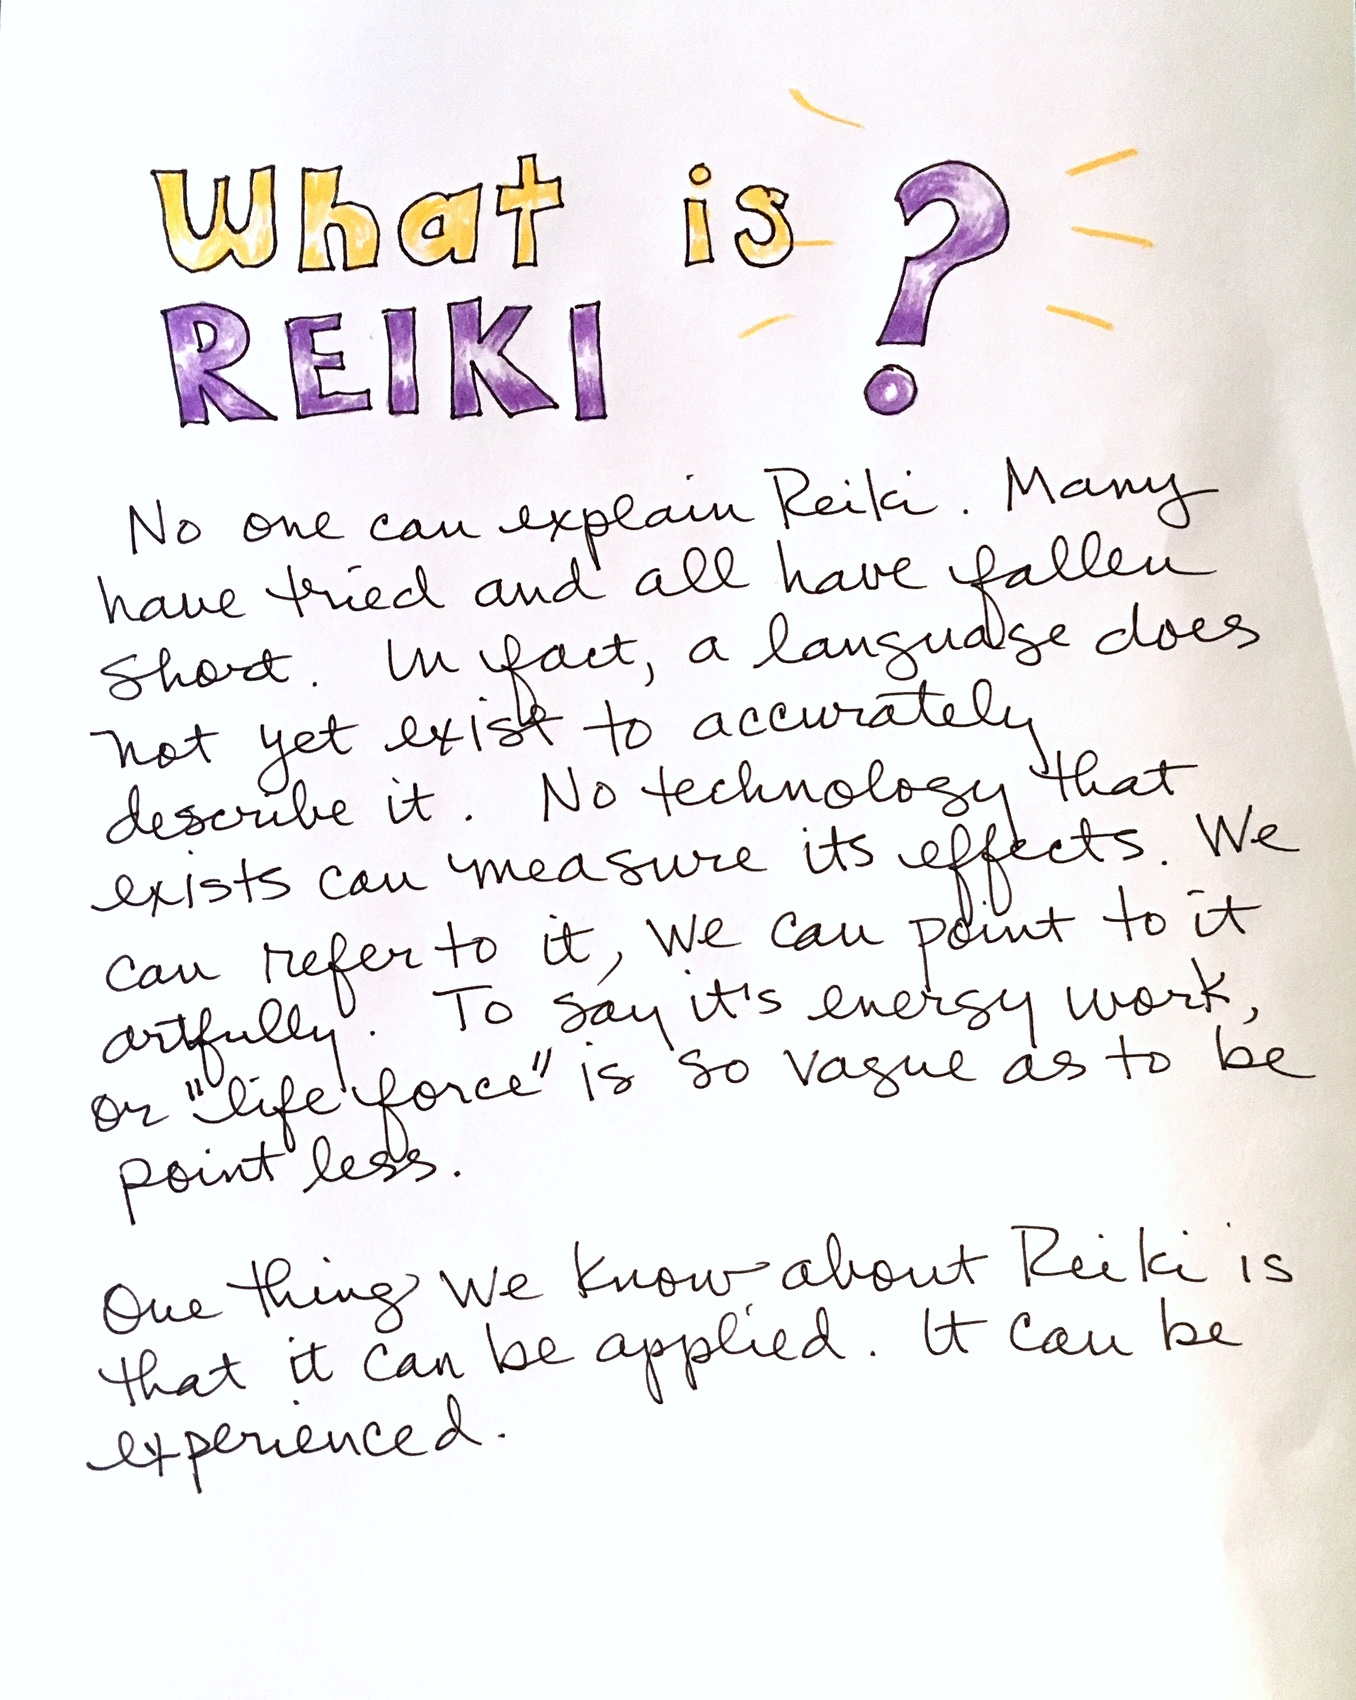 What is ?
REIKI
No one can explain Reiki. Many
have tried and all have fallen
short. In fact, a language does
not yet exist to accurately
describe it. No technology that
exists can measure its effects. We
can refer to it, we can point to it
artfully. To say it's energy work,
or "life force" is so vague as to be
point less.
One thing we know about Reiki is
that it can be applied. It can be
experienced.